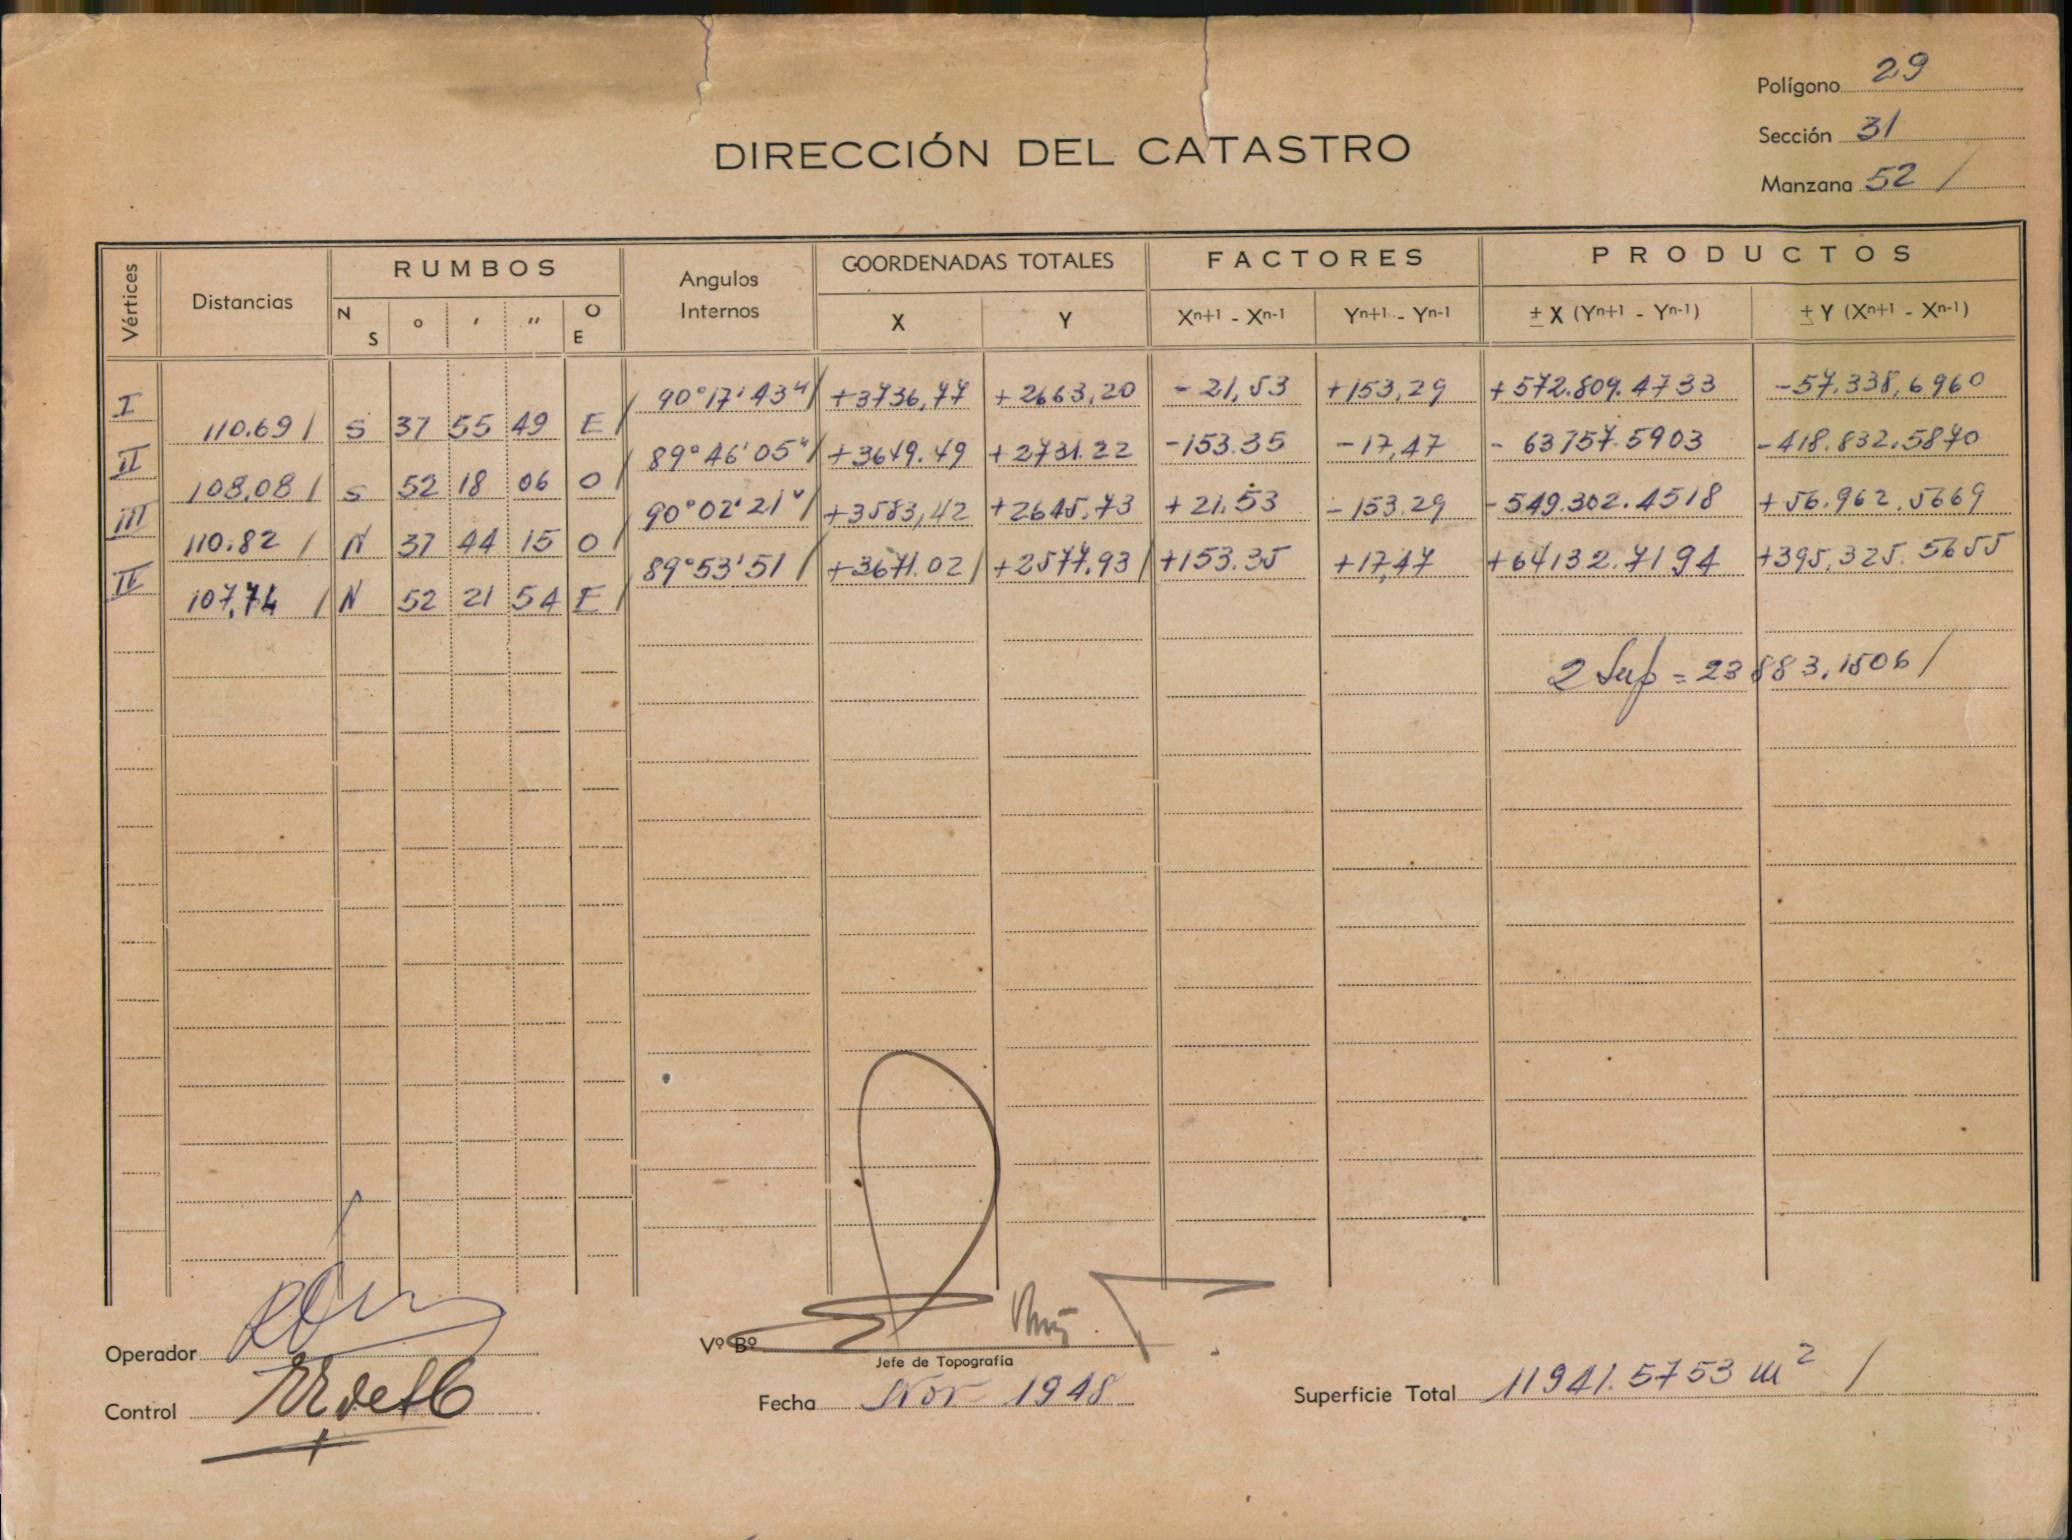 Polígono 29
Sección 31
Manzana 52 /
DIRECCIÓN DEL CATASTRO
Vértices Distancias RUMBOS Angulos Internos COORDENADAS TOTALES FACTORES PRODUCTOS
N S ° ' " O E X Y Xn+1 - Xn-1 Yn+1 - Yn-1 ± X (Yn+1 - Yn-1) ± Y (Xn+1 - Xn-1)
I 90°17'43"/ +3736,77 +2663,20 -21,53 +153,29 +572.809.4733 -57.338,6960
110.69 / S 37 55 49 E /
II 89°46'05"/ +3649.49 +2731.22 -153.35 -17,47 - 63757.5903 -418.832.5870
108,08 / S 52 18 06 O /
III 90°02'21"/ +3583,42 +2645,73 +21.53 -153.29 -549.302.4518 +56.962.5669
110.82 / N 37 44 15 O /
IV 89°53'51 / +3671.02 / +2577,93 / +153.35 +17,47 +64132.7194 +395,325.5655
107,74 / N 52 21 54 E /
2 Sup = 23883,1506 /
Operador
Vº Bº
Jefe de Topografía
Control
Fecha Nov 1948
Superficie Total 11941.5753 m² /